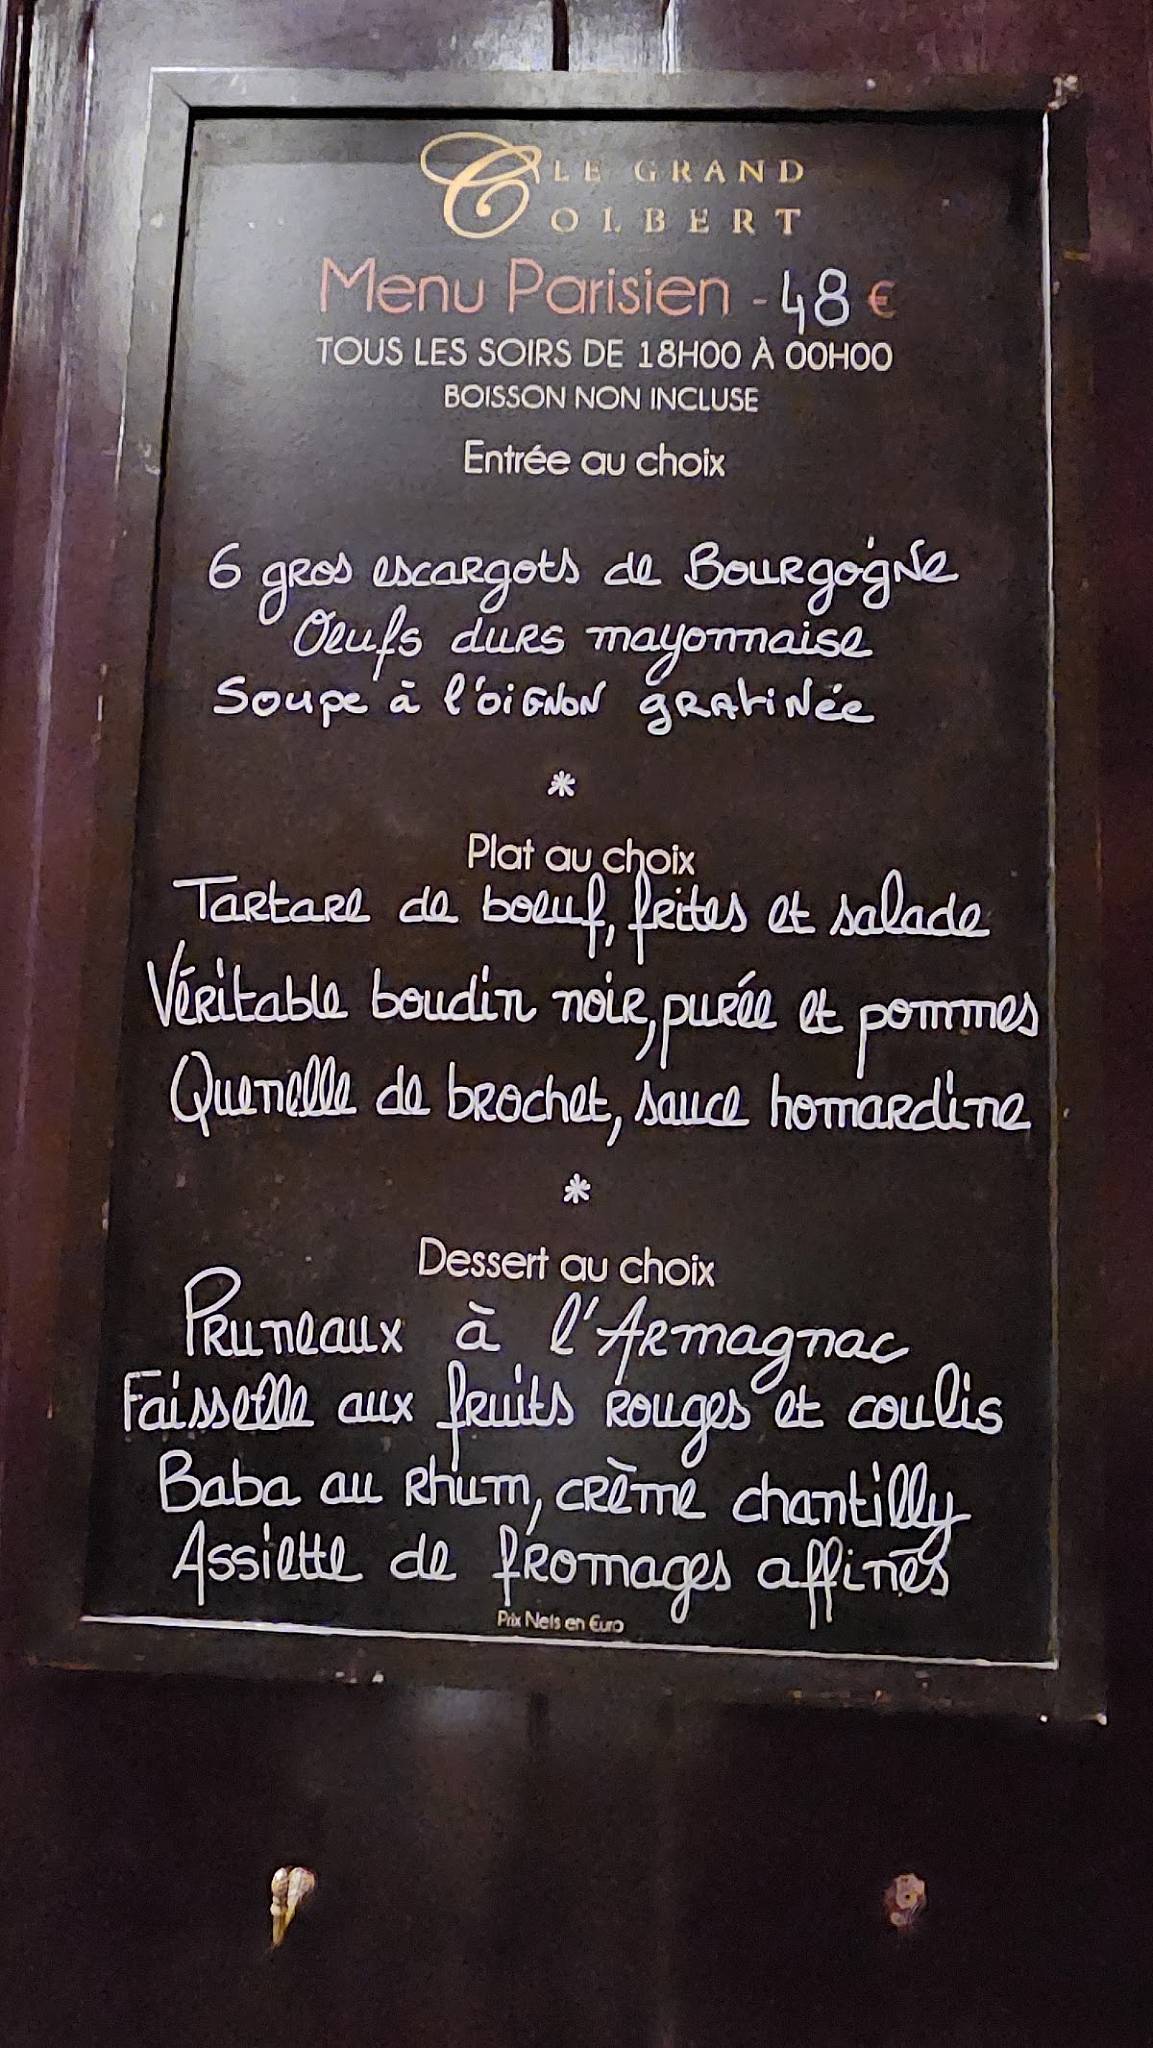 LE GRAND
COLBERT
Menu Parisien - 48 €
TOUS LES SOIRS DE 18H00 À 00H00
BOISSON NON INCLUSE
Entrée au choix
6 gros escargots de Bourgogne
Œufs durs mayonnaise
Soupe à l'oignon gratinée
*
Plat au choix
Tartare de boeuf, frites et salade
Véritable boudin noir, purée et pommes
Quenelle de brochet, sauce homardine
*
Dessert au choix
Pruneaux à l'Armagnac
Faisselle aux fruits rouges et coulis
Baba au rhum, crème chantilly
Assiette de fromages affinés
Prix Nets en €uro